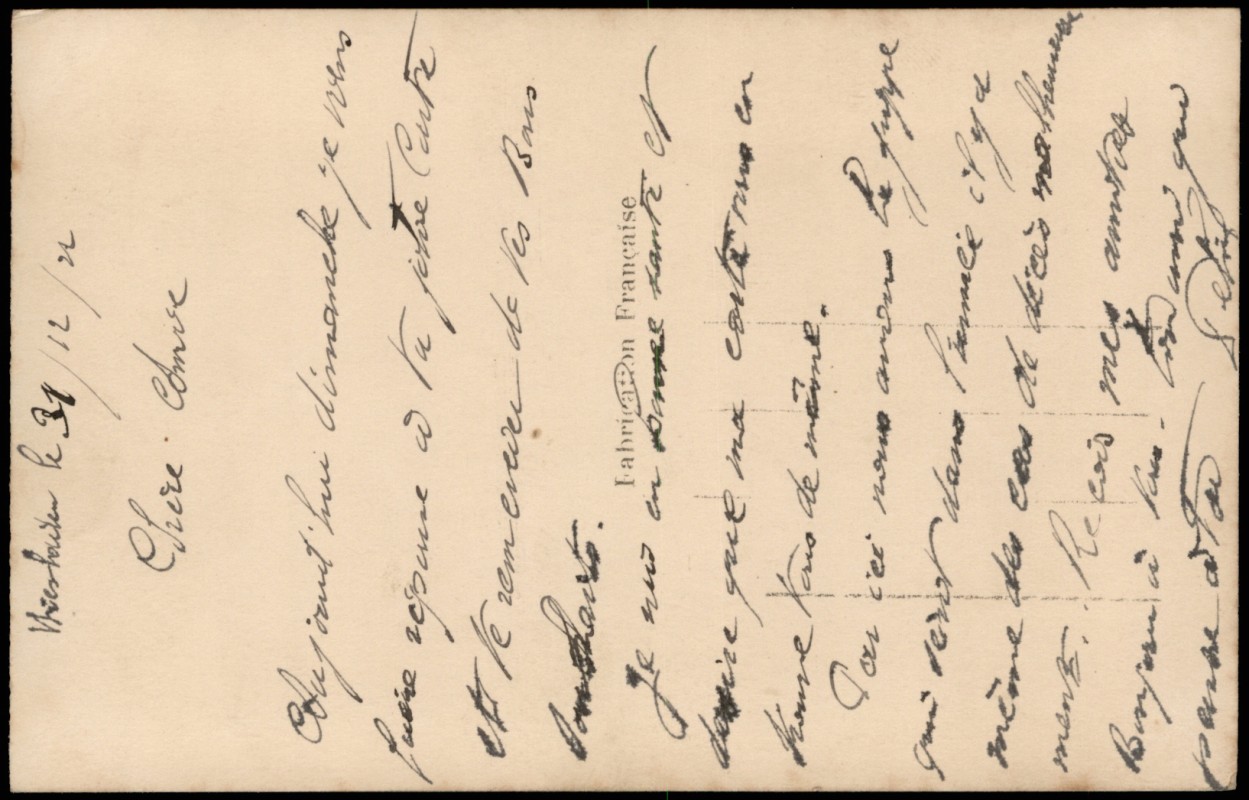 Wiesbaden le 31/12/22
Chère Amie
Aujourd'hui dimanche je viens
faire réponse à ta jolie Carte
ett te remercier de tes Bons
souhaits.
Je suis en bonne santé et
desire que ma carte vous en
trouve tous de même.
Par ici nous avons la grippe
qui sévit dans l'armée il y a
même des cas de décès malheureuse
ment. Recois mes amitiés
Bonjour à tous - ton ami qui
pense à Toi
Fabrication Française